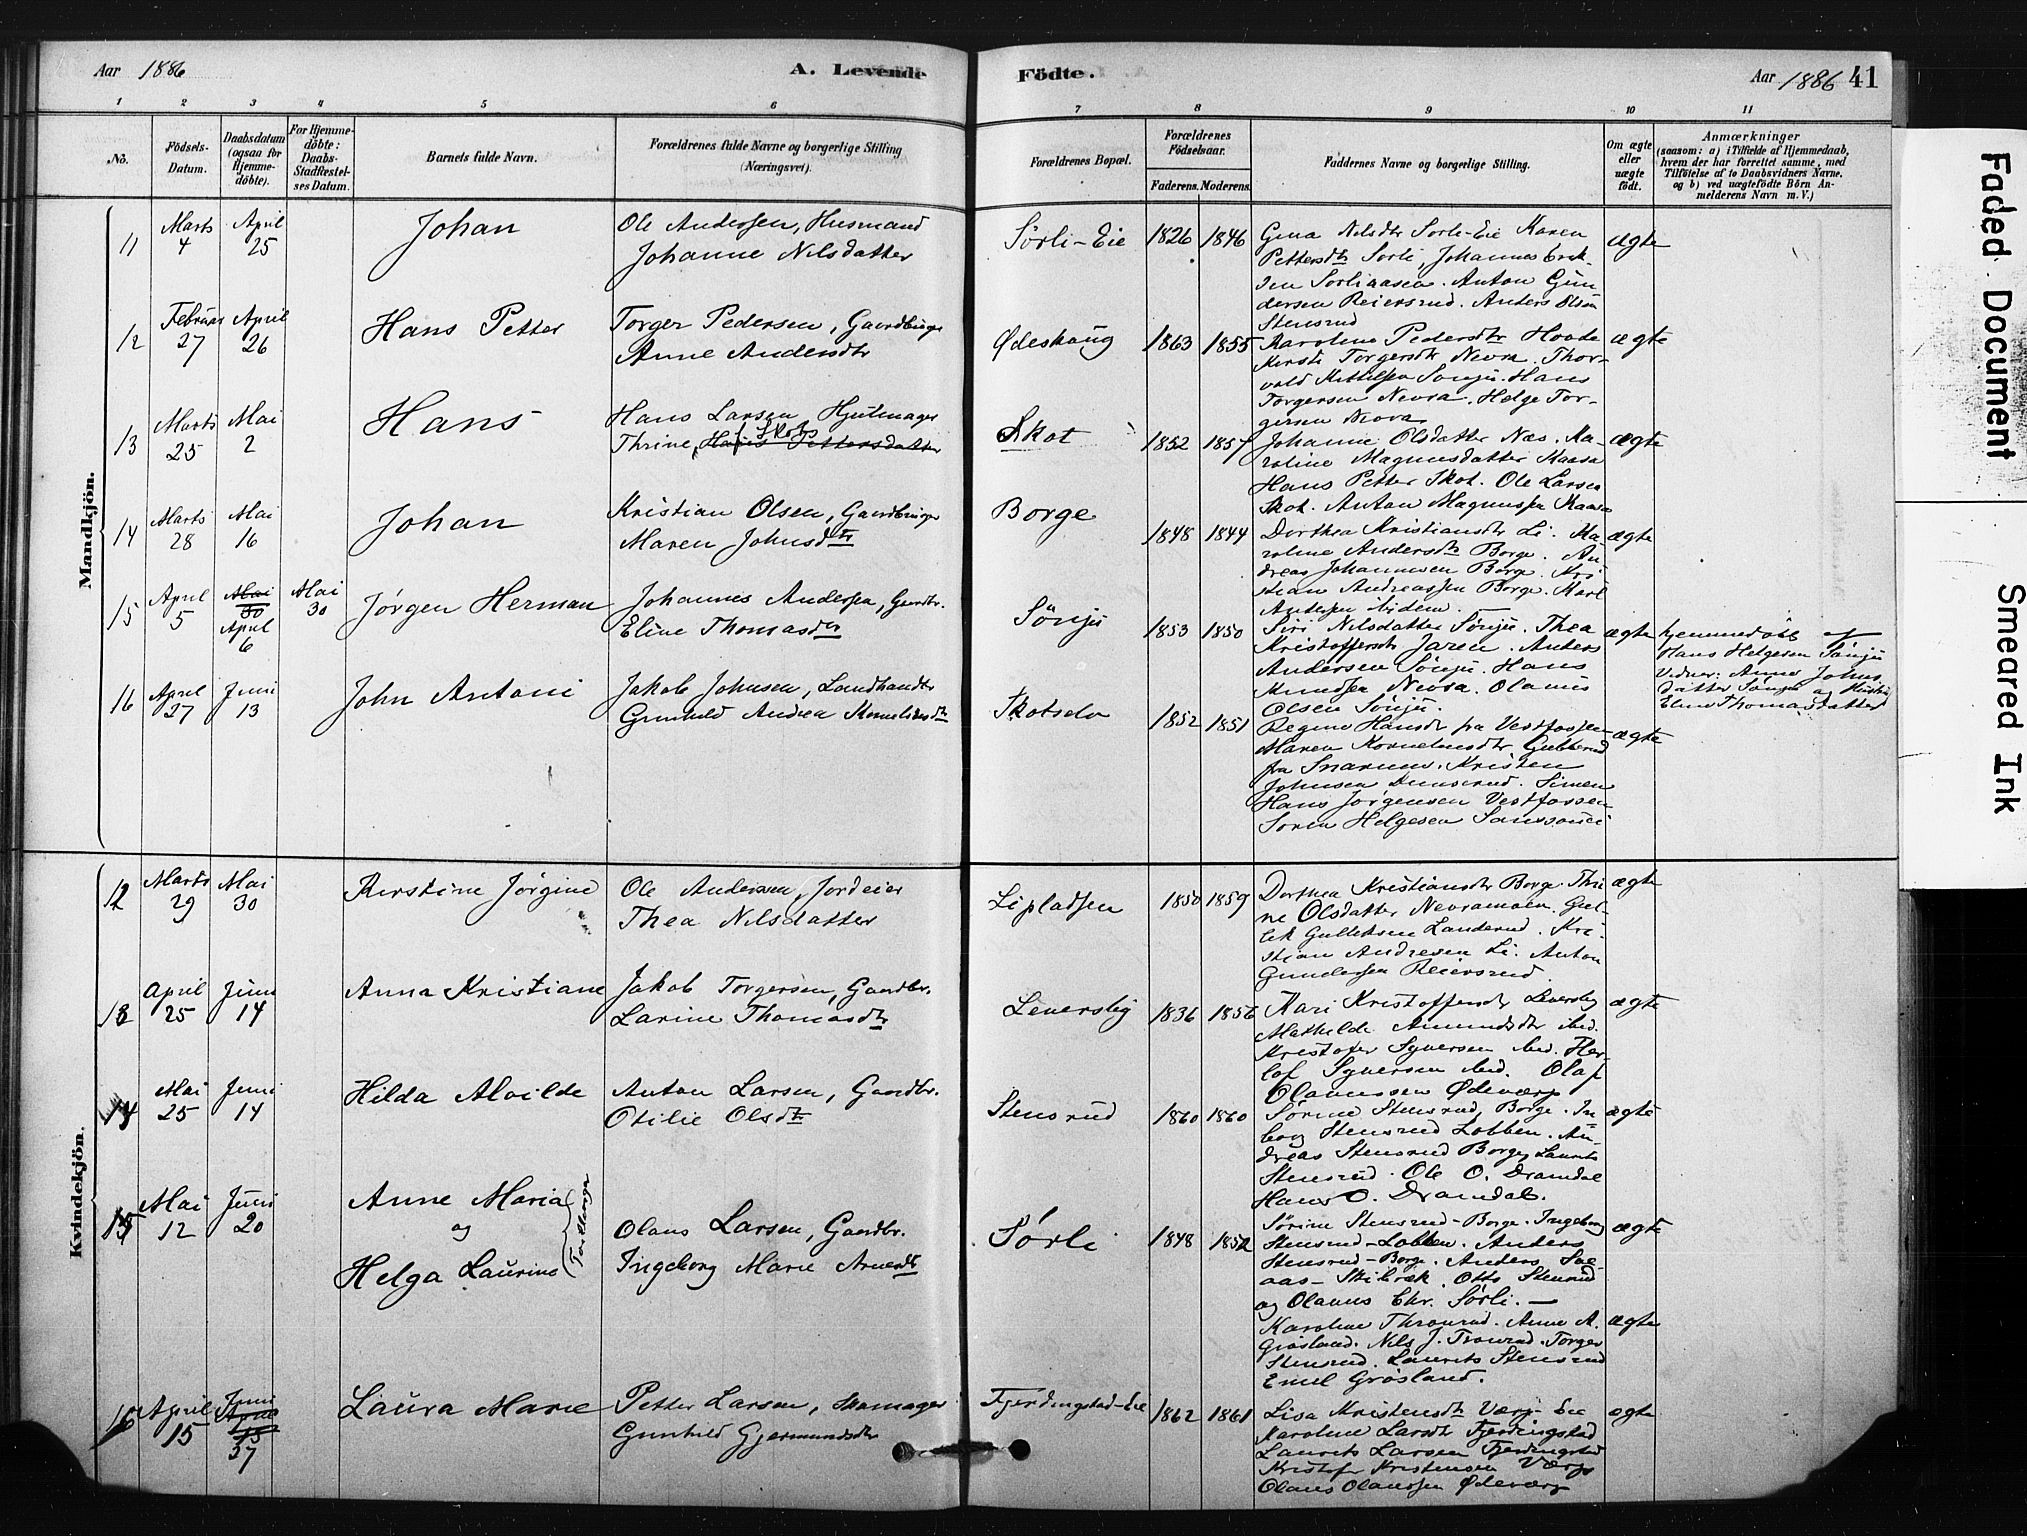 Aar 1886
A. Levende
Födte.
Aar 1886 41
1 2 3 4 5 6 7 8 9 10 11
No.
Födsels-
Datum.
Daabsdatum
(ogsaa for
Hjemme-
döbte).
For Hjemme-
döbte:
Daabs-
Stadfæstel-
ses Datum.
Barnets fulde Navn.
Forældrenes fulde Navne og borgerlige Stilling
(Næringsvei).
Forældrenes Bopæl.
Forældrenes
Födselsaar.
Faderens. Moderens.
Faddernes Navne og borgerlige Stilling.
Om ægte
eller
uægte
födt.
Anmærkninger
(saasom: a) i Tilfælde af Hjemmedaab,
hvem der har forrettet samme, med
Tilföielse af to Daabsvidners Navne.
og b) ved uægtefödte Börn An-
melderens Navn m. V.)
Mandkjön.
11 Marts 4 April 25
Johan
Ole Andersen, Husmand
Johanne Nilsdatter
Sørli-Eie 1826 1846
Gina Nilsdtr Sorli-Eie Karen
Pettersdtr Sorli, Johannes Erik-
sen Sorliaasen. Anton Gun
dersen Reiersrud. Anders Olsen
Stensrud
ægte
12 Februar 27 April 26
Hans Petter
Torger Pedersen, Gaardbruger
Anne Andersdtr
Ødeskaug 1863 1855
Karoline Pedersdtr
Torgersdtr Nevra. Thor-
vald Kittilsen Sønju. Hans
Torgersen Nevra. Helge Tor-
gersen Nevra
ægte
13 Marts 25 Mai 2
Hans
Hans Larsen, Hjulmager
Thrine, Hans Pettersdatter
Skot 1852 1857
Johanne Olsdatter Næs. Ka-
roline Magnusdatter Kaasa
Hans Petter Skot. Ole Larsen
Skot. Anton Magnussen Kaasa
ægte
14 Marts 28 Mai 16
Johan
Kristian Olsen, Gaardbruger
Maren Johnsdtr
Borge 1848 1844
Dorthea Kristiansdtr Li. Ka-
roline Andersdtr Borge. An-
dreas Johannesen Borge. Kri
stian Andreassen Borge. Karl
Andersen ibidem.
ægte
15 April 5 Mai 30 April 6 Mai 30
Jørgen Herman
Johannes Andersen, Gaardbr.
Eline Thomasdtr
Sönju 1853 1850
Siri Nilsdatter Sønju. Thea
Kristoffersdtr Jaren. Anders
Andersen Sønju. Hans
Knudsen Nevra. Olanus
Olsen Sønju.
ægte
hjemmedöbt af
Hans Helgesen Sønju
Vidner: Anne Johns
datter Sønju og
Eline Thomasdatter
16 April 27 Juni 13
John Antoni
Jakob Johnsen, Landhandlr
Gunhild Andrea Kornelisdtr
Skotselv 1852 1851
Regine Hansdtr fra Vestfossen
Maren Korneliusdtr Gubberud
fra Snarum. Kristen
Johnsen Dunserud. Simen
Hans Jörgensen Vestfossen
Soren Helgesen Sanssouci
ægte
Kvindekjön.
12 Marts 29 Mai 30
Kirstine Jørgine
Ole Andersen, Jordeier
Thea Nilsdatter
Lipladsen 1850 1859
Dorthea Kristiansdtr Borge. Thri
ne Olsdatter Nevramoen. Gul-
lik Gulliksen Landerud. Kri-
stian Andresen Li. Anton
Gundersen Reiersrud
ægte
13 April 25 Juni 14
Anna Kristiane
Jakob Torgersen, Gaardbr.
Larine Thomasdtr
Leverslig 1836 1856
Kari Kristoffersdtr Leverslig
Mathilde Amundsdtr ibid.
Kristofer Syversen ibid. Her-
lof Syversen ibid. Olaf
Olaussen Ødeværp
ægte
14 Mai 25 Juni 14
Hilda Alvilde
Anton Larsen, Gaardbr.
Otilie Olsdtr
Stensrud 1860 1860
Sørine Stensrud, Borge. In-
borg Stensrud Lobben. An-
dreas Stensrud Borge, Laurits
Stensrud. Ole O. Dramdal
Hans O. Dramdal.
ægte
15 Mai 12 Juni 20
Anne Maria
og
Helga Laurine
Tvillinger
Olaus Larsen, Gaardbr.
Ingeborg Marie Arnesdtr
Sørli 1848 1852
Sørine Stensrud-Borge. Ingeborg
Stensrud-Lobben. Anders
Stensrud-Borge. Anders Sol-
aas- Skibræk. Otto Stensrud
og Olaves Chr. Sørli. —
ægte
Karoline Thronrud. Anne A.
Grøsland. Nils J. Tronrud. Torger
Stensrud. Laurits Stensrud
Emil Grøsland.
ægte
16 April 15 Juni
Laura Marie
Petter Larsen, Skomager
Gunhild Gjermundsdtr
Fjerdingstad-Eie 1862 1861
Lisa Kristensdtr Værp-Eie
Karoline Larsdtr Fjerdingstad
Laurits Larsen Fjerdingstad
Kristofer Kristensen Værp
Olaus Olaussen Ødeværp
ægte
Faded Document
Smeared Ink